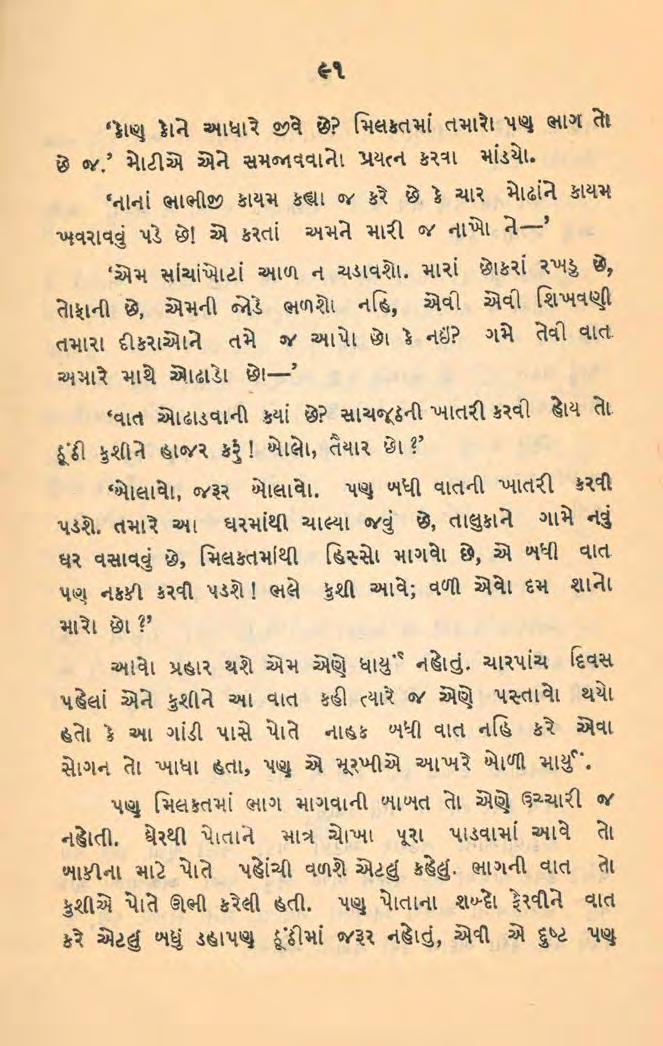 ૯૧
‘કોણ કોને આધારે જીવે છે? મિલકતમાં તમારો પણ ભાગ તો
છે જ.’ મોટીએ એને સમજાવવાનો પ્રયત્ન કરવા માંડયો.
‘નાનાં ભાભીજી કાયમ કહ્યા જ કરે છે કે ચાર મોઢાંને કાયમ
ખવરાવવું પડે છે! એ કરતાં અમને મારી જ નાખો ને—’
‘એમ સાંચાંખોટાં આળ ન ચડાવશો. મારાં છોકરાં રખડુ છે,
તોફાની છે, એમની જોડે ભળશો નહિ, એવી એવી શિખવણી
તમારા દીકરાઓને તમે જ આપો છો કે નઇં? ગમે તેવી વાત
અમારે માથે ઓઢાડો છો—’
‘વાત ઓઢાડવાની કયાં છે? સાચજૂઠની ખાતરી કરવી હોય તો
ઠૂંઠી કુશીને હાજર કરું! બોલો, તૈયાર છો?’
‘બોલાવો, જરૂર બોલાવો. પણ બધી વાતની ખાતરી કરવી
પડશે. તમારે આ ઘરમાંથી ચાલ્યા જવું છે, તાલુકાને ગામે નવું
ઘર વસાવવું છે, મિલકતમાંથી હિસ્સો માગવો છે, એ બધી વાત
પણ નક્કી કરવી પડશે! ભલે કુશી આવે; વળી એવો દમ શાનો
મારો છો?’
આવો પ્રહાર થશે એમ એણે ધાર્યું નહોતું. ચારપાંચ દિવસ
પહેલાં એને કુશીને આ વાત કહી ત્યારે જ એણે પસ્તાવો થયો
હતો કે આ ગાંડી પાસે પોતે નાહક બધી વાત નહિ કરે એવા
સોગન તો ખાધા હતા, પણ એ મૂરખીએ આખરે બોળી માર્યું.
પણ મિલકતમાં ભાગ માગવાની બાબત તો એણે ઉચ્ચારી જ
નહોતી. ઘેરથી પોતાને માત્ર ચોખા પૂરા પાડવામાં આવે તો
બાકીના માટે પોતે પહોંચી વળશે એટલું કહેલું. ભાગની વાત તો
કુશીએ પોતે ઊભી કરેલી હતી. પણ પોતાના શબ્દો ફેરવીને વાત
કરે એટલું બધું ડહાપણ ઠૂંઠીમાં જરૂર નહોતું, એવી એ દુષ્ટ પણ